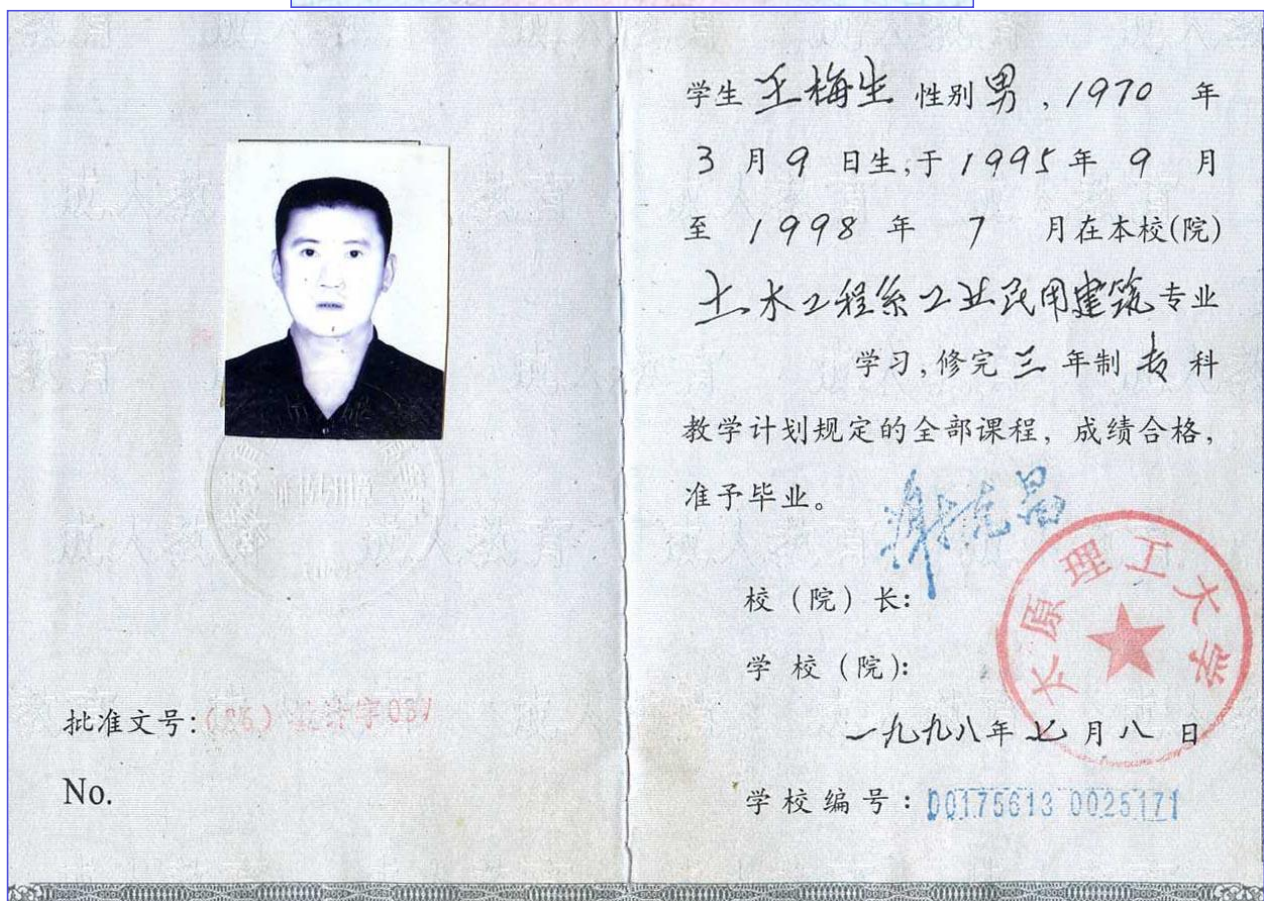 批准文号:
No.
学生 王梅生 性别 男 , 1970 年
3 月 9 日生,于 1995 年 9 月
至 1998 年 7 月在本校(院)
土木工程系工业民用建筑 专业
学习,修完 三 年制 专 科
教学计划规定的全部课程, 成绩合格,
准予毕业。
校 (院) 长:
学 校 (院):
太原理工大学
一九九八年 七 月 八 日
学 校 编 号 : 00175613 0025171